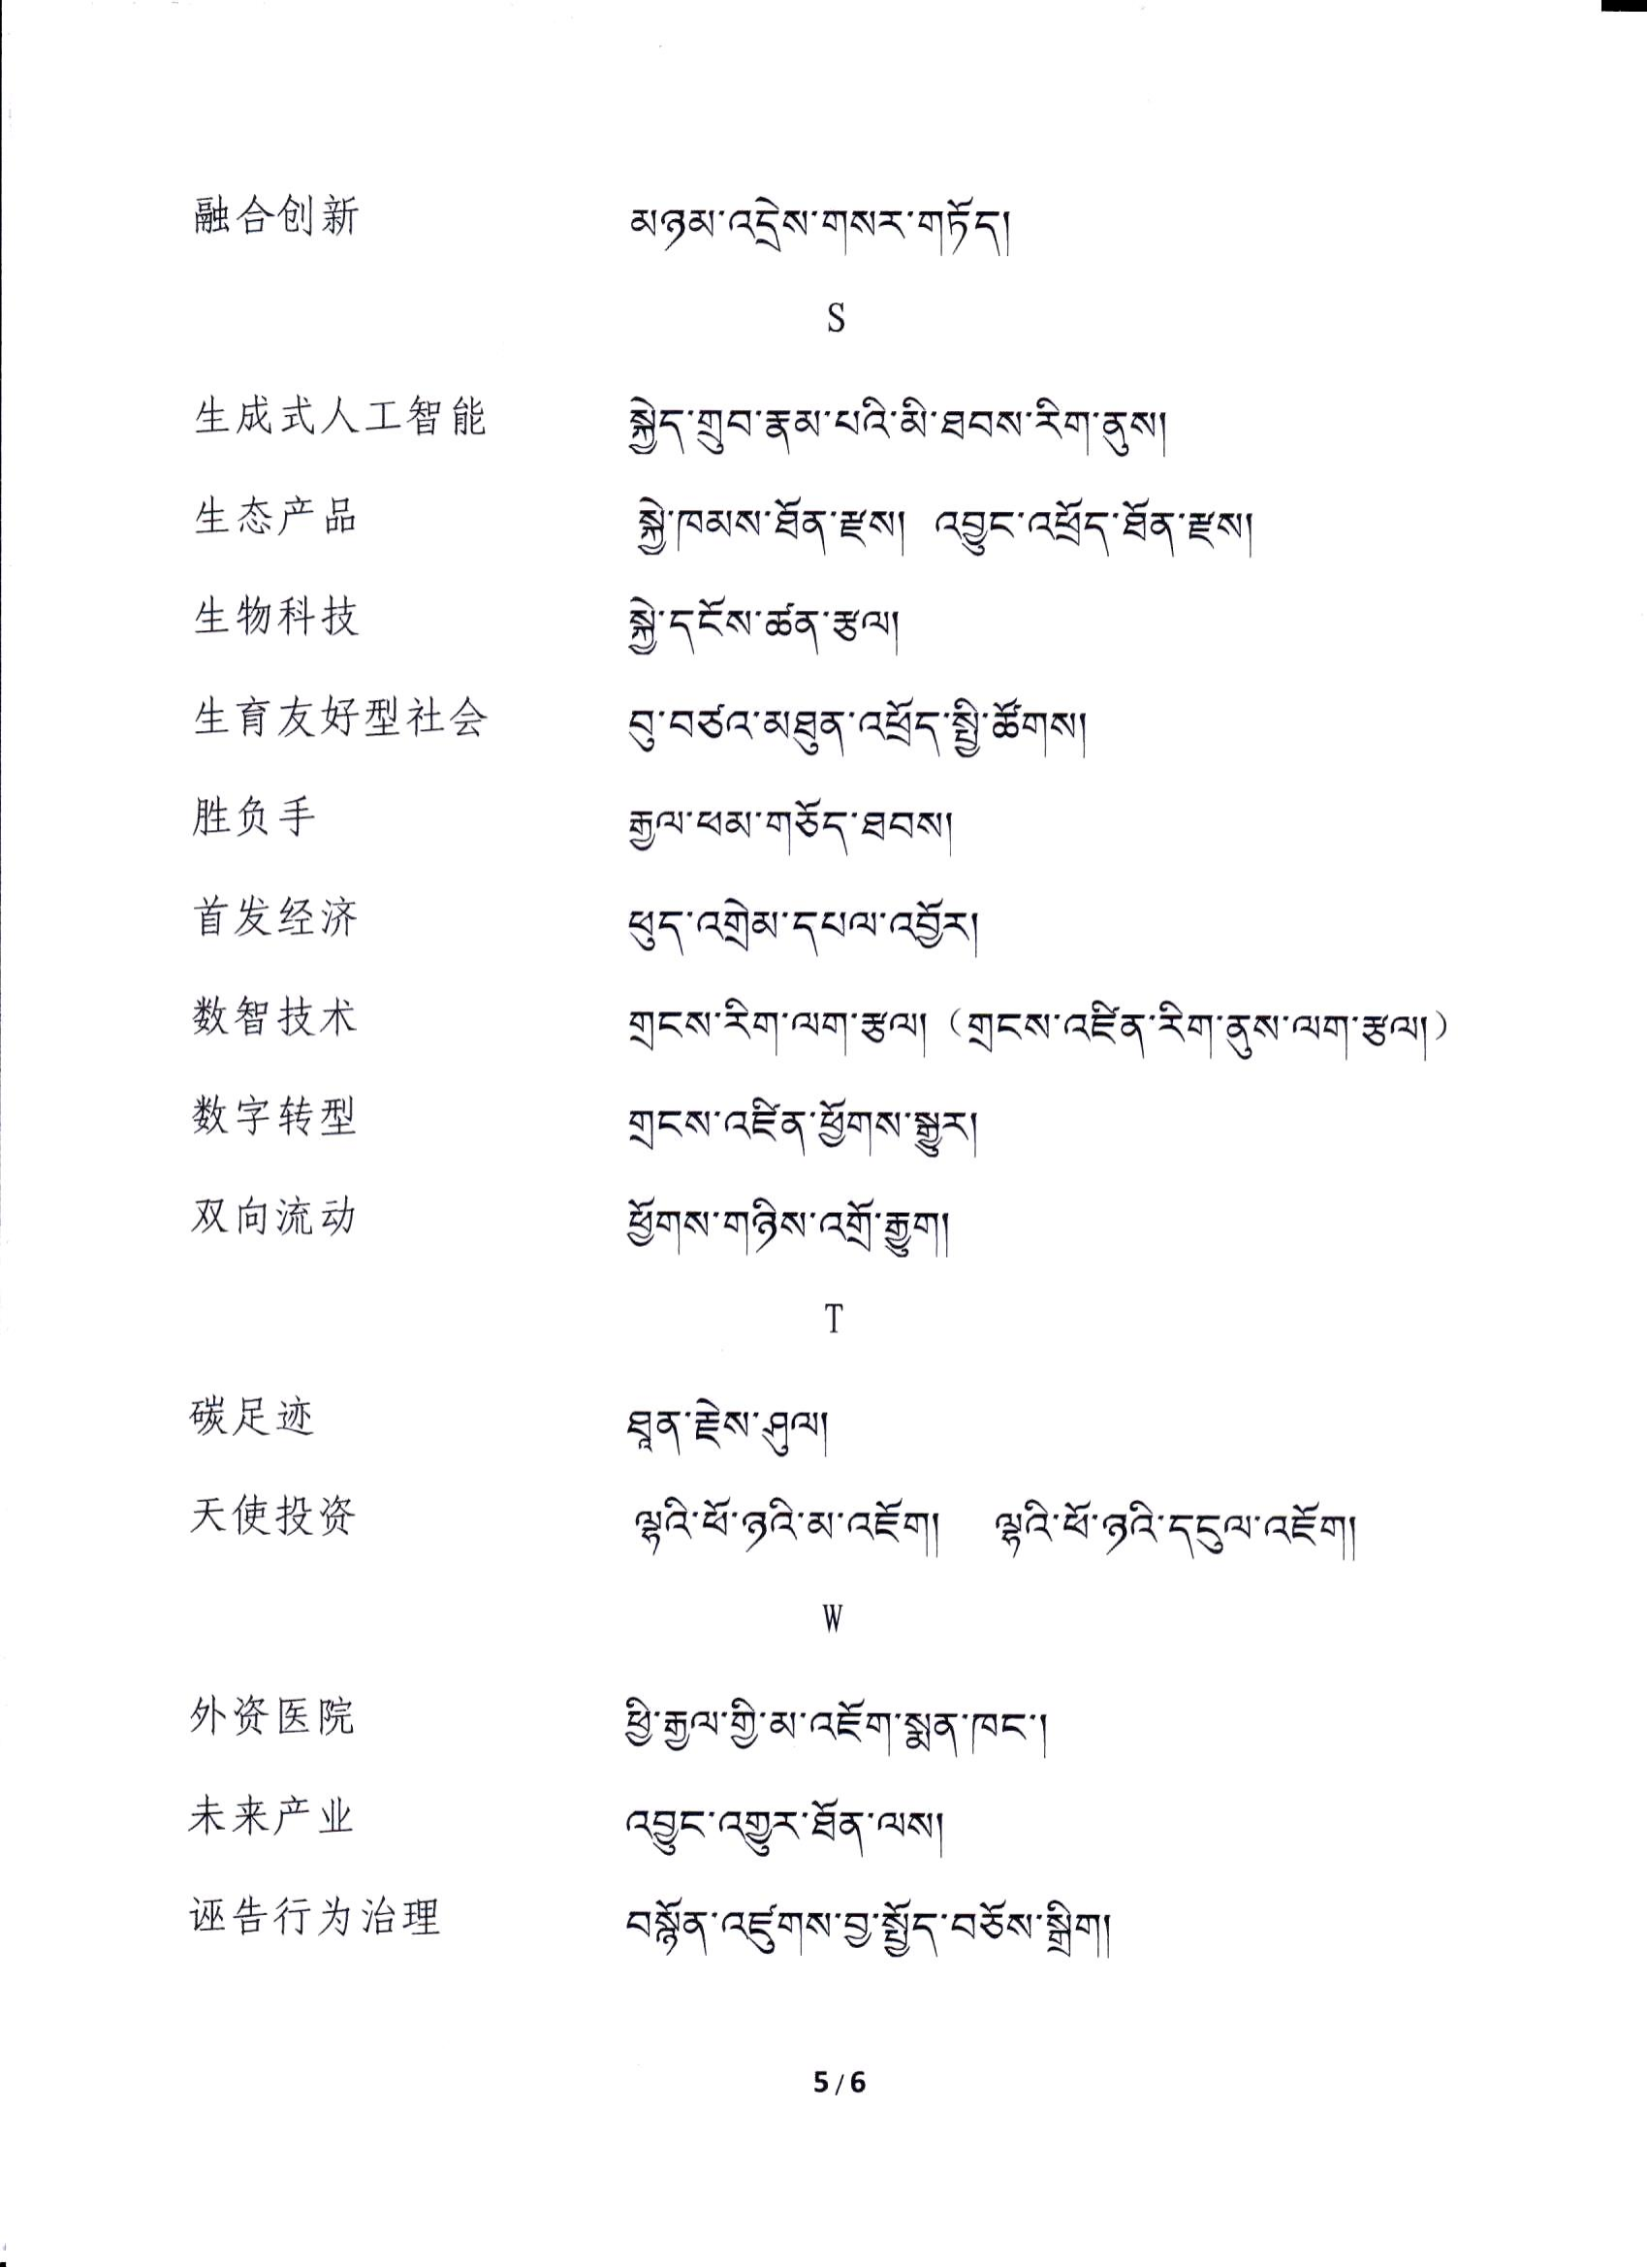 融合创新 མཉམ་འདྲེས་གསར་གཏོད།
S
生成式人工智能 སྐྱེད་གྲུབ་རྣམ་པའི་མི་ཐབས་རིག་ནུས།
生态产品 སྐྱེ་ཁམས་ཐོན་རྫས། འབྱུང་འཕྲོད་ཐོན་རྫས།
生物科技 སྐྱེ་དངོས་ཚན་རྩལ།
生育友好型社会 བུ་བཙའ་མཐུན་འཕྲོད་སྤྱི་ཚོགས།
胜负手 རྒྱལ་ཕམ་གཅོད་ཐབས།
首发经济 ཕུད་འགྲེམ་དཔལ་འབྱོར།
数智技术 གྲངས་རིག་ལག་རྩལ། (གྲངས་འཛིན་རིག་ནུས་ལག་རྩལ།)
数字转型 གྲངས་འཛིན་ཕྱོགས་སྒྱུར།
双向流动 ཕྱོགས་གཉིས་འགྲོ་རྒྱུག།
T
碳足迹 ཐཱན་རྗེས་ཤུལ།
天使投资 ལྷའི་ཕོ་ཉའི་མ་འཇོག། ལྷའི་ཕོ་ཉའི་དངུལ་འཇོག།
W
外资医院 ཕྱི་རྒྱལ་གྱི་མ་འཇོག་སྨན་ཁང་།
未来产业 འབྱུང་འགྱུར་ཐོན་ལས།
诬告行为治理 བསྙོན་འཛུགས་བྱ་སྤྱོད་བཅོས་སྒྲིག།
5/6